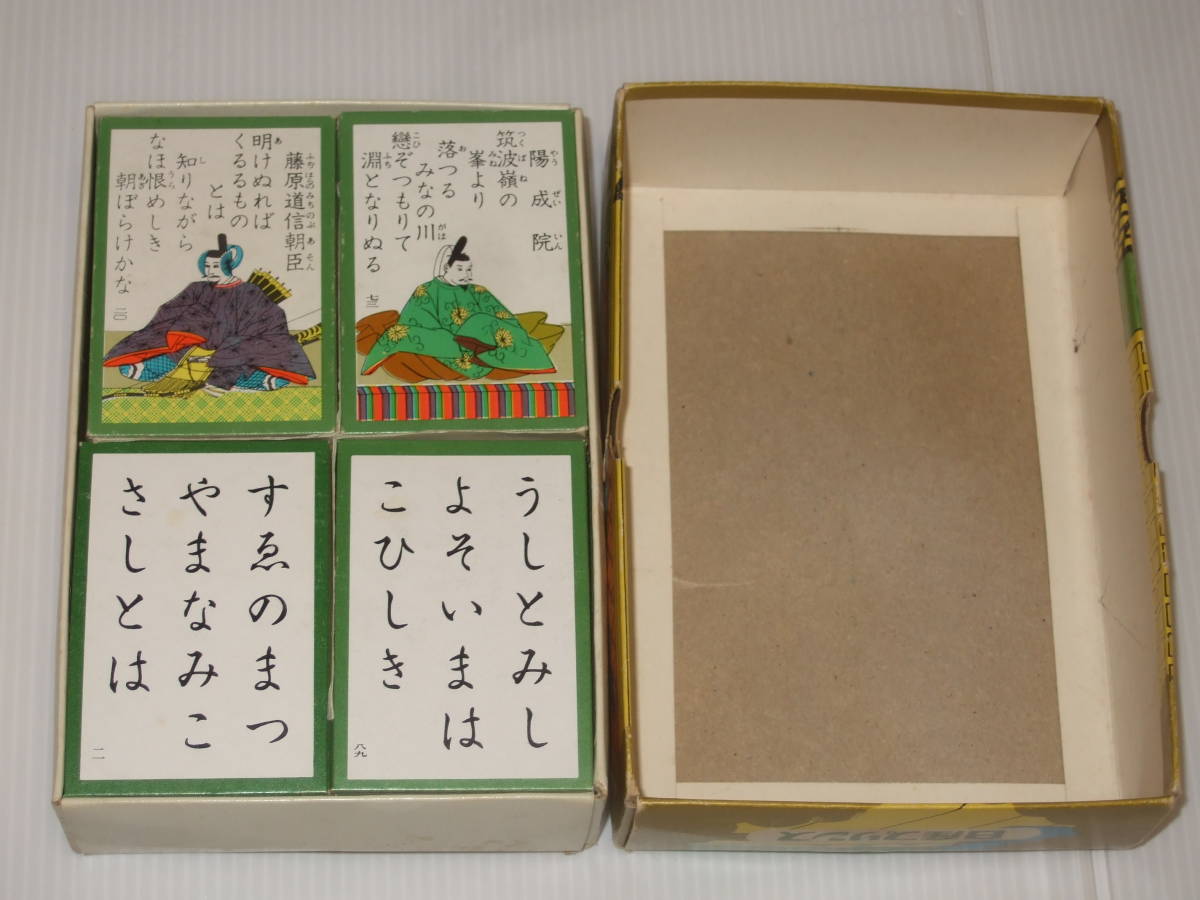 藤原道信朝臣
明けぬれば
くるるもの
とは
知りながら
なほ恨めしき
朝ぼらけかな
二〇
陽成院
筑波嶺の
峯より
落つる
みなの川
戀ぞつもりて
淵となりぬる
七三
すゑのまつ
やまなみこ
さしとは
うしとみし
よそいまは
こひしき
八九
日産プリンス